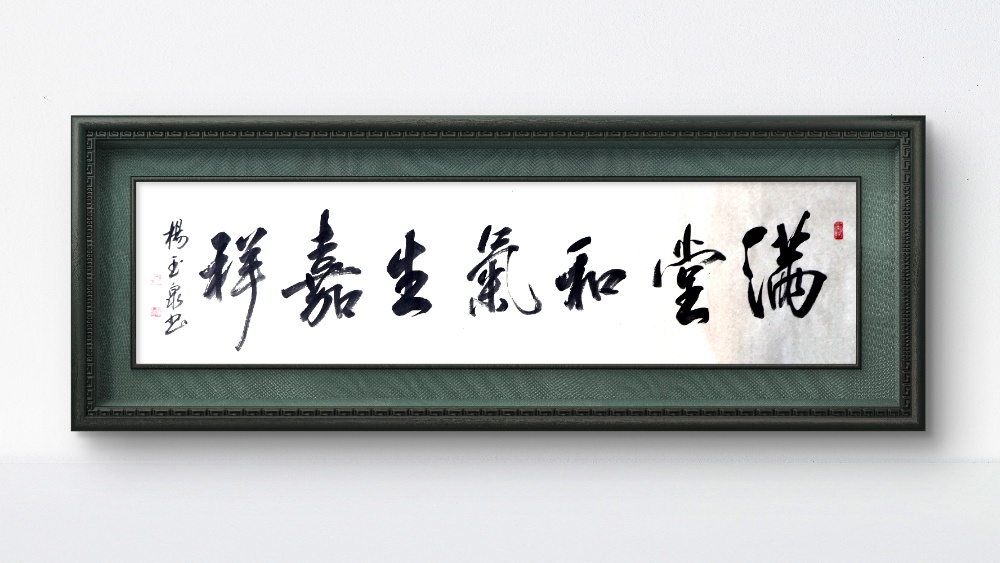 满堂和氣生嘉祥
楊玉泉书